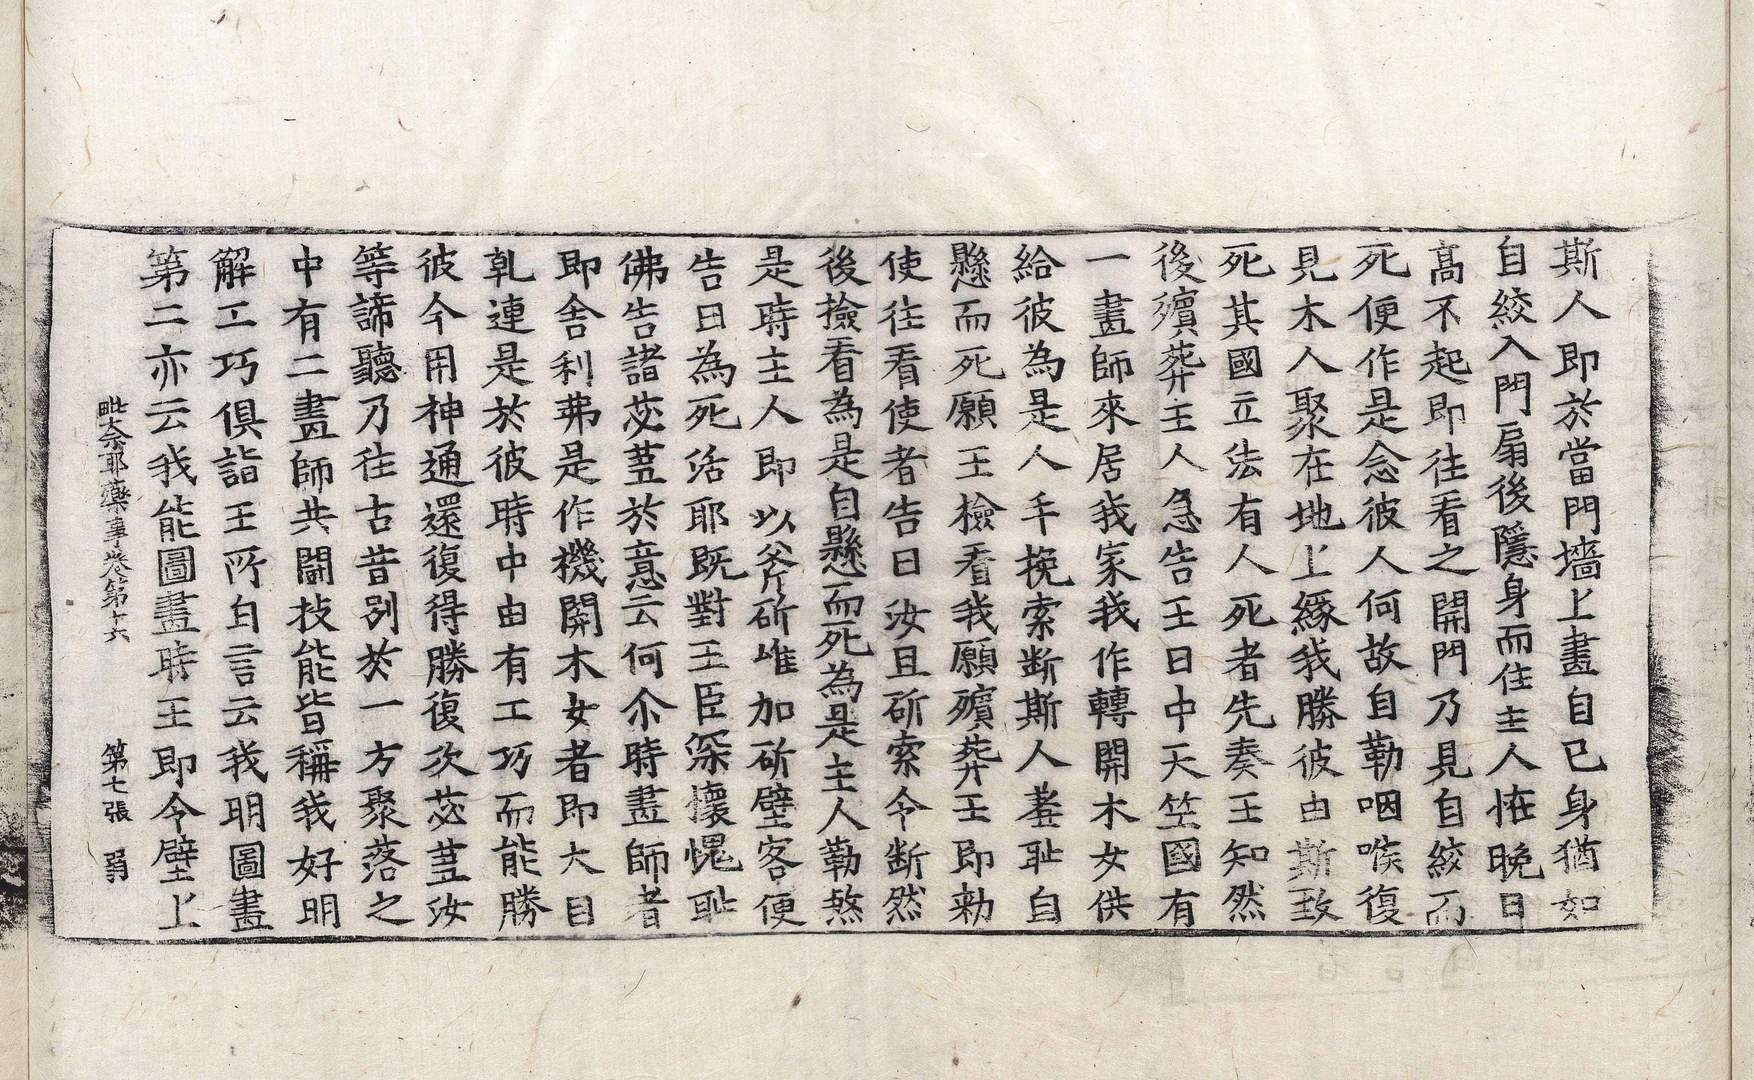 斯人即於當門墻上畫自已身猶如
自絞入門扇後隱身而住主人恠晚日
高不起即往看之開門乃見自絞而
死便作是念彼人何故自勒咽喉復
見木人聚在地上緣我勝彼由斯致
死其國立法有人死者先奏王知然
後殯葬主人急告王曰中天竺國有
一畫師來居我家我作轉開木女供
給彼為是人手挽索断斯人羞耻自
懸而死願王檢看我願殯葬王即勑
使往看使者告曰汝且斫索令断然
後撿看為是自懸而死為是主人勒煞
是時主人即以斧斫唯加斫壁客便
告曰為死活耶既對王臣深懷愧耻
佛告諸苾蒭於意云何尒時畫師者
即舍利弗是作機關木女者即大目
乹連是於彼時中由有工巧而能勝
彼今用神通還復得勝復次苾蒭汝
等諦聽乃往古昔別於一方聚落之
中有二畫師共鬪技能皆稱我好明
解工巧俱詣王所白言云我明圖畫
第二亦云我能圖畫時王即令壁上
毗奈耶藥事卷第十六 第七張